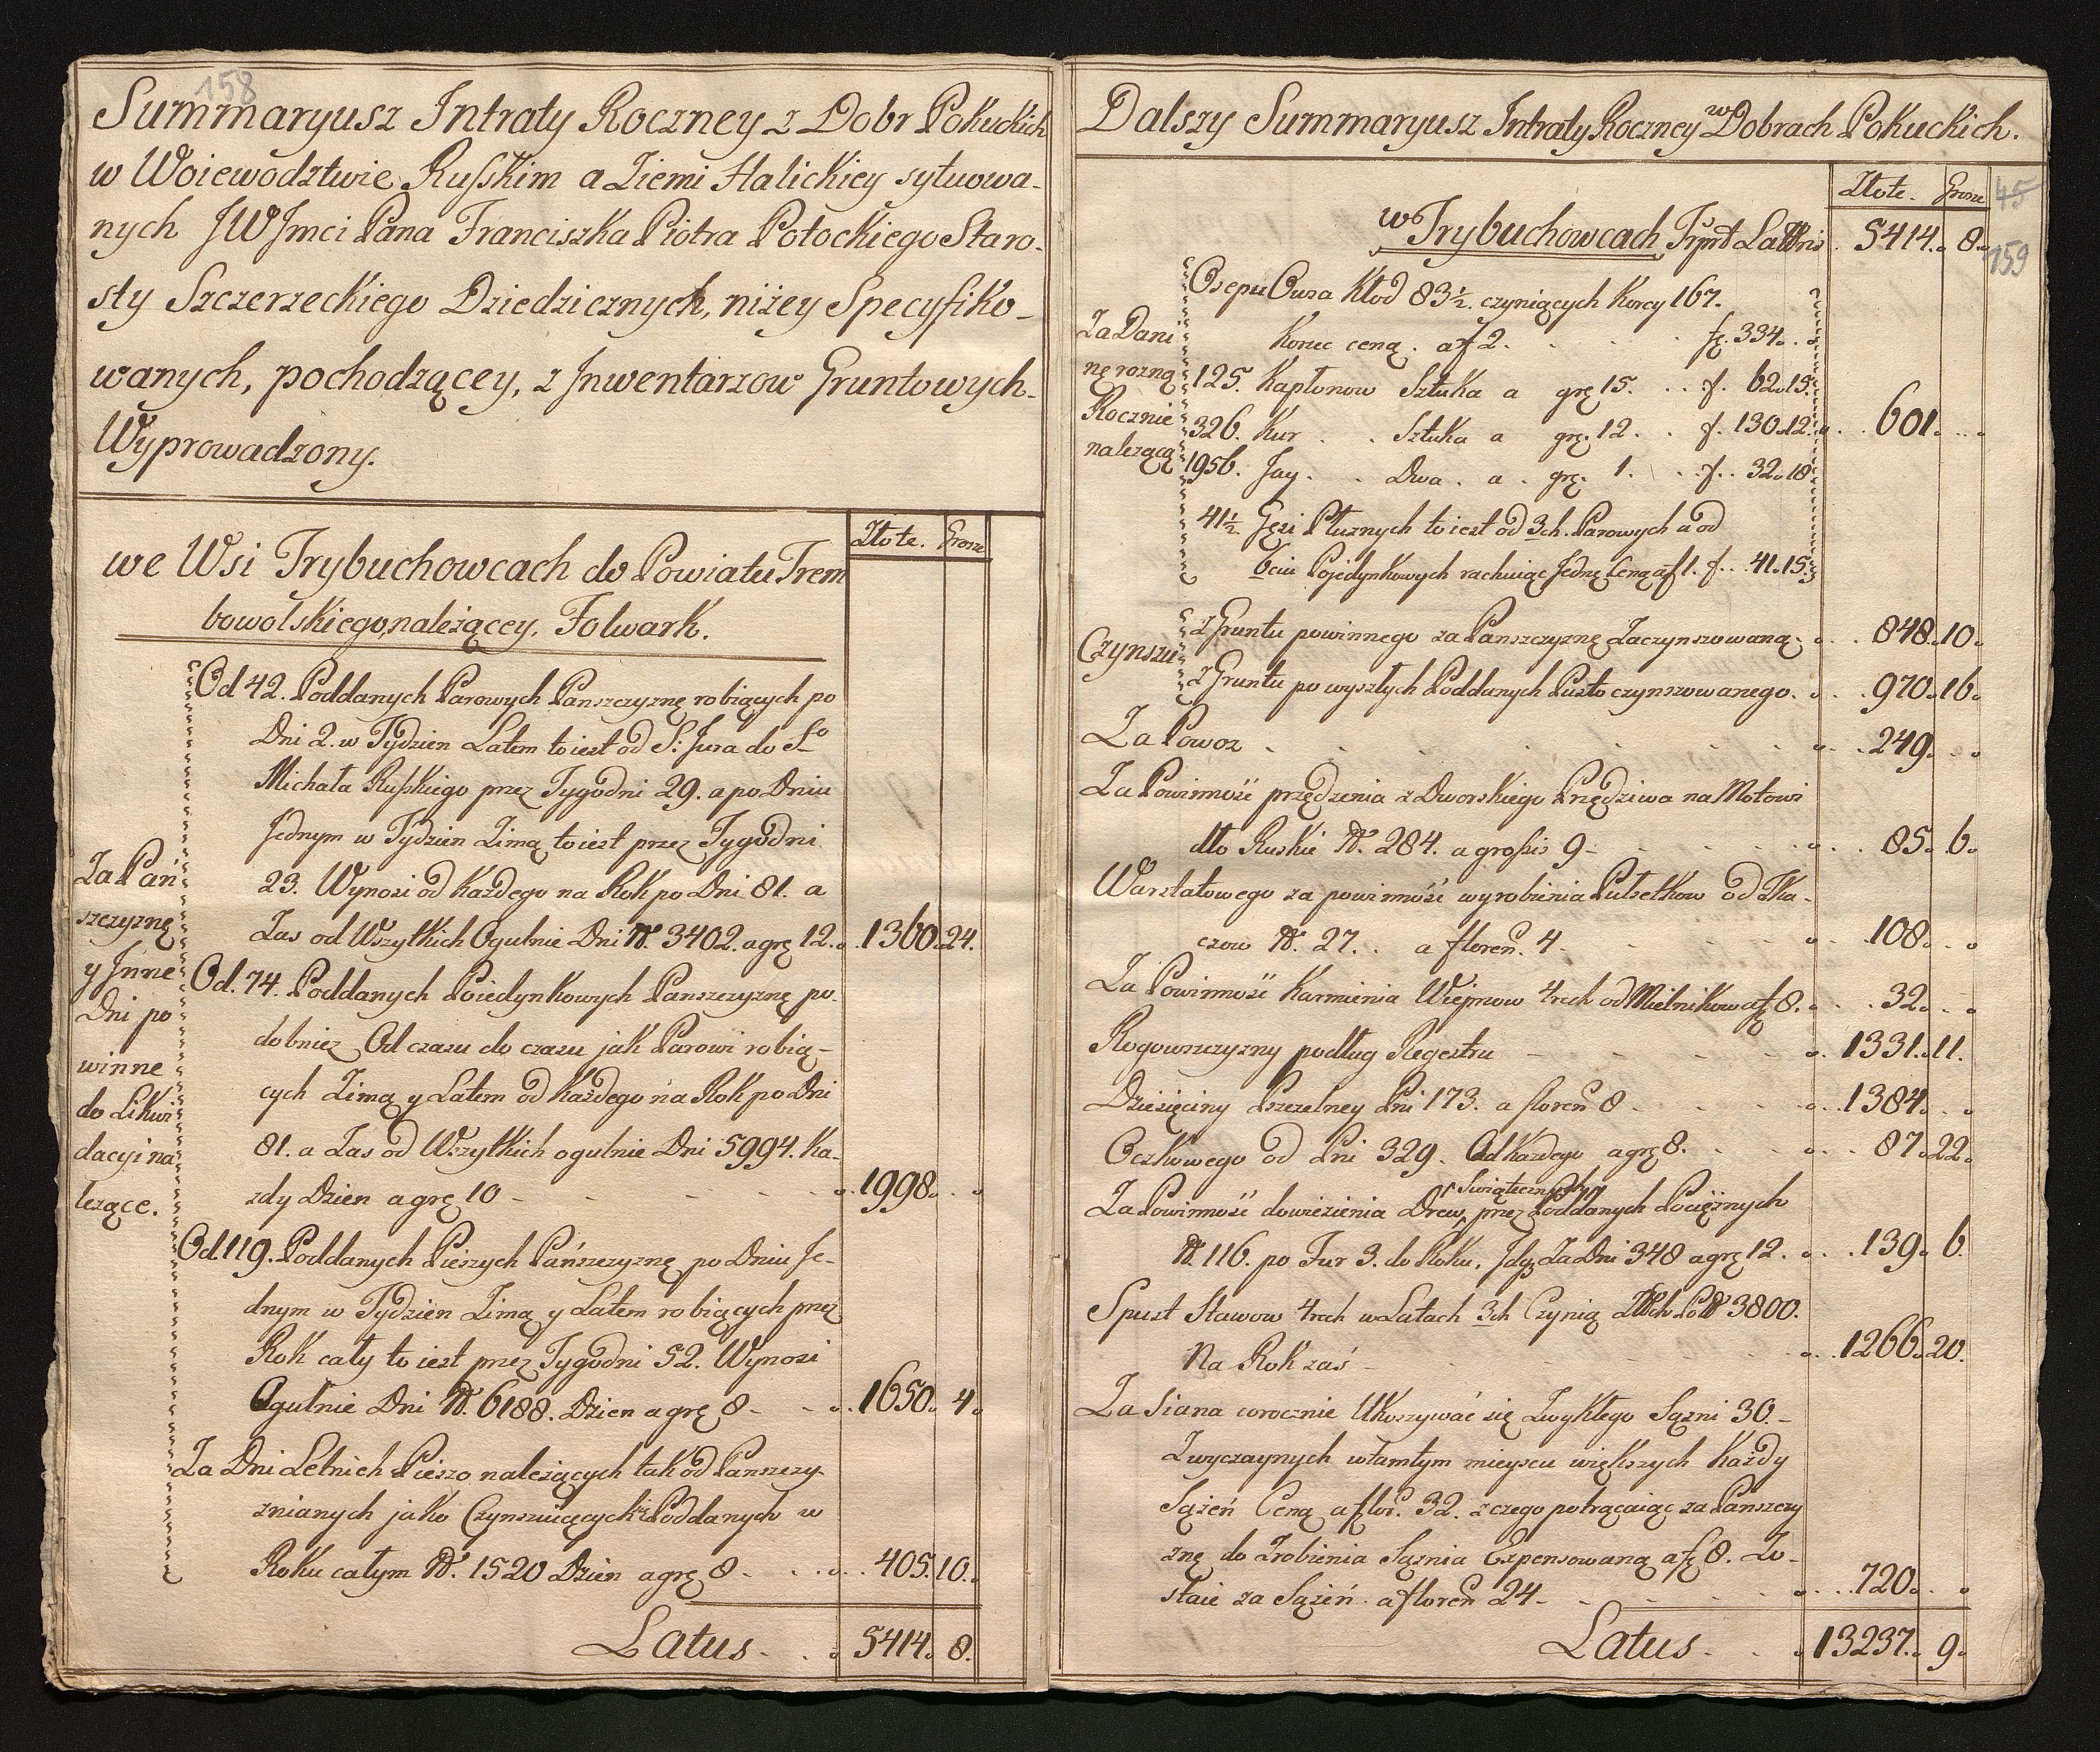 158
Summaryusz Intraty Roczney z Dobr Pokuckich
w Woiewodztwie Ruskim a Ziemi Halickiey sytuowa-
nych JWJmci Pana Franciszka Piotra Potockiego Staro-
sty Szczerzeckiego Dziedzicznych, niżey Specyfiko-
wanych, pochodzącey, z Jnwentarzow Gruntowych
Wyprowadzony.
Złote. Grosze
we Wsi Trybuchowcach do Powiatu Trem
bowolskiego należącey. Folwark.
Za Pań
szczyznę
y Jnne
Dni po
winne
do Likwi
dacyi na
lezące.
Od 42. Poddanych Parowych Panszczyznę robiących po
Dni 2. w Tydzien Latem to iest od S: Jura do Sº
Michała Ruskiego przez Tygodni 29. a po Dniu
Jednym w Tydzien Zimą to iest przez Tygodni
23. Wynosi od Każdego na Rok po Dni 81. a
Zas od Wszytkich Ogulnie Dni N. 3402. a grę 12. 1360. 24.
Od. 74. Poddanych Poiedynkowych Panszczyznę po-
dobniez Od czasu do czasu jak Parowi robią-
cych Zimą y Latem od Każdego na Rok po Dni
81. a Zas od Wszytkich ogulnie Dni 5994. Ka-
zdy Dzien a grę 10 - 1998.
Od. 119. Poddanych Pieszych Pańszczyznę po Dniu Je-
dnym w Tydzien Zimą y Latem robiących przez
Rok cały to iest przez Tygodni 52. Wynosi
Ogulnie Dni N. 6188. Dzien a grę 8 - 1650. 4.
Za Dni Letnich Pieszo należących tak od Panszczy-
znianych jako Czynszuiących Poddanych w
Roku całym N. 1520 Dzien a grę 8 - 405. 10.
Latus. 5414. 8.
Dalszy Summaryusz Intraty Roczney w Dobrach Pokuckich.
Złote. Grosze
45
159
w Trybuchowcach Lattris 5414. 8.
Za Dani
nę rozną
Rocznie
nalezącą
Osepu Owsa Kłod 83½. czyniących Korcy 167.
Korzec ceną. a f 2. f. 334.
125. Kapłonow Sztuka a grę 15. f. 62. 15.
326. Kur Sztuka a grę. 12. f. 130. 12. 601.
1956. Jay. Dwa. a. grę. 1. f. 32. 18
41½. Gęsi Płuznych to iest od 3ch. Parowych a od
6ciu Pojedynkowych rachuiąc Jedną Ceną a f 1. f. 41. 15.
Czynszu
z Gruntu powinnego za Panszczyznę Zaczynszowaną. 848. 10.
z Gruntu po wyszłych Poddanych Pusto czynszowanego. 970. 16.
Za Powoz 249.
Za Powinność przędzenia z Dworskiego Przędziwa na Motowi
dło Ruskie N. 284. a grossis 9 - 85. 6.
Warstatowego za powinność wyrobienia Pułsetkow od Tka-
czow N. 27. a floren. 4 108.
Za Powinność Karmienia Wieprzow 4rech od Mielnikow a f 8. 32.
Rogowszczyzny podług Regestru - 1331. 11.
Dziesięciny Pszczelney Pni 173. a floren 8 - 1384.
Oczkowego od Pni 329. Od Kazdego a grę 8. 87. 22.
Za Powinność dowiezienia Drew Swiątecznych przez Poddanych Pociężnych
N. 116. po Fur 3. do Roku, Za Dni 348 a grę 12. 139. 6.
Spust Stawow 4rech w Latach 3ch Czynią 3800.
Na Rok zaś - 1266. 20.
Za Siana corocznie Ukoszywać się Zwykłego Sązni 30. -
Zwyczaynych w tamtym mieyscu większych Każdy
Sążeń Ceną a flor. 32. z czego potrącaiąc za Panszczy
znę do Zrobienia Sąznia Expensowaną a f 8. Zo-
staie za Sążeń. a floren 24 - 720.
Latus. 13237. 9.